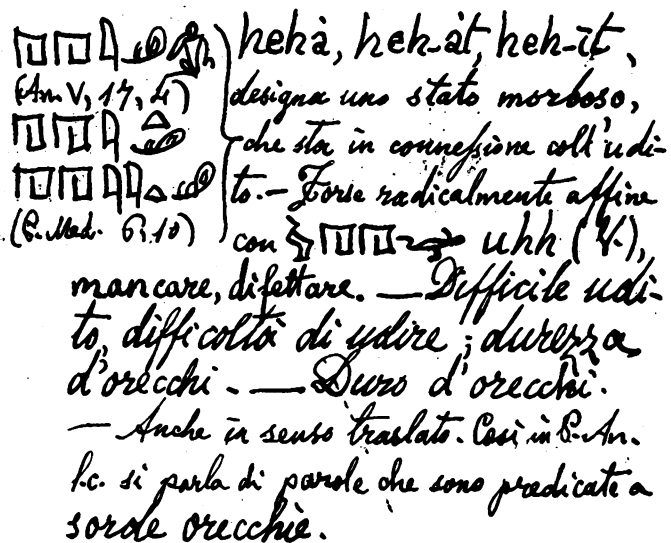 𓉔𓉔𓇋 hehà, heh-àt, heh-īt,
(An V, 17, 4) designa uno stato morboso,
𓉔𓉔𓇋𓏏 che sta in connessione coll'udi-
𓉔𓉔𓇋𓇋𓏏 to.— Forse radicalmente affine
(P. Med. 6, 10) con 𓉔𓉔 uhh (V.),
mancare, difettare. — Difficile udi-
to, difficoltà di udire; durezza
d'orecchi. — Duro d'orecchi.
— Anche in senso traslato. Così in P. An.
l.c. si parla di parole che sono predicate a
sorde orecchie.